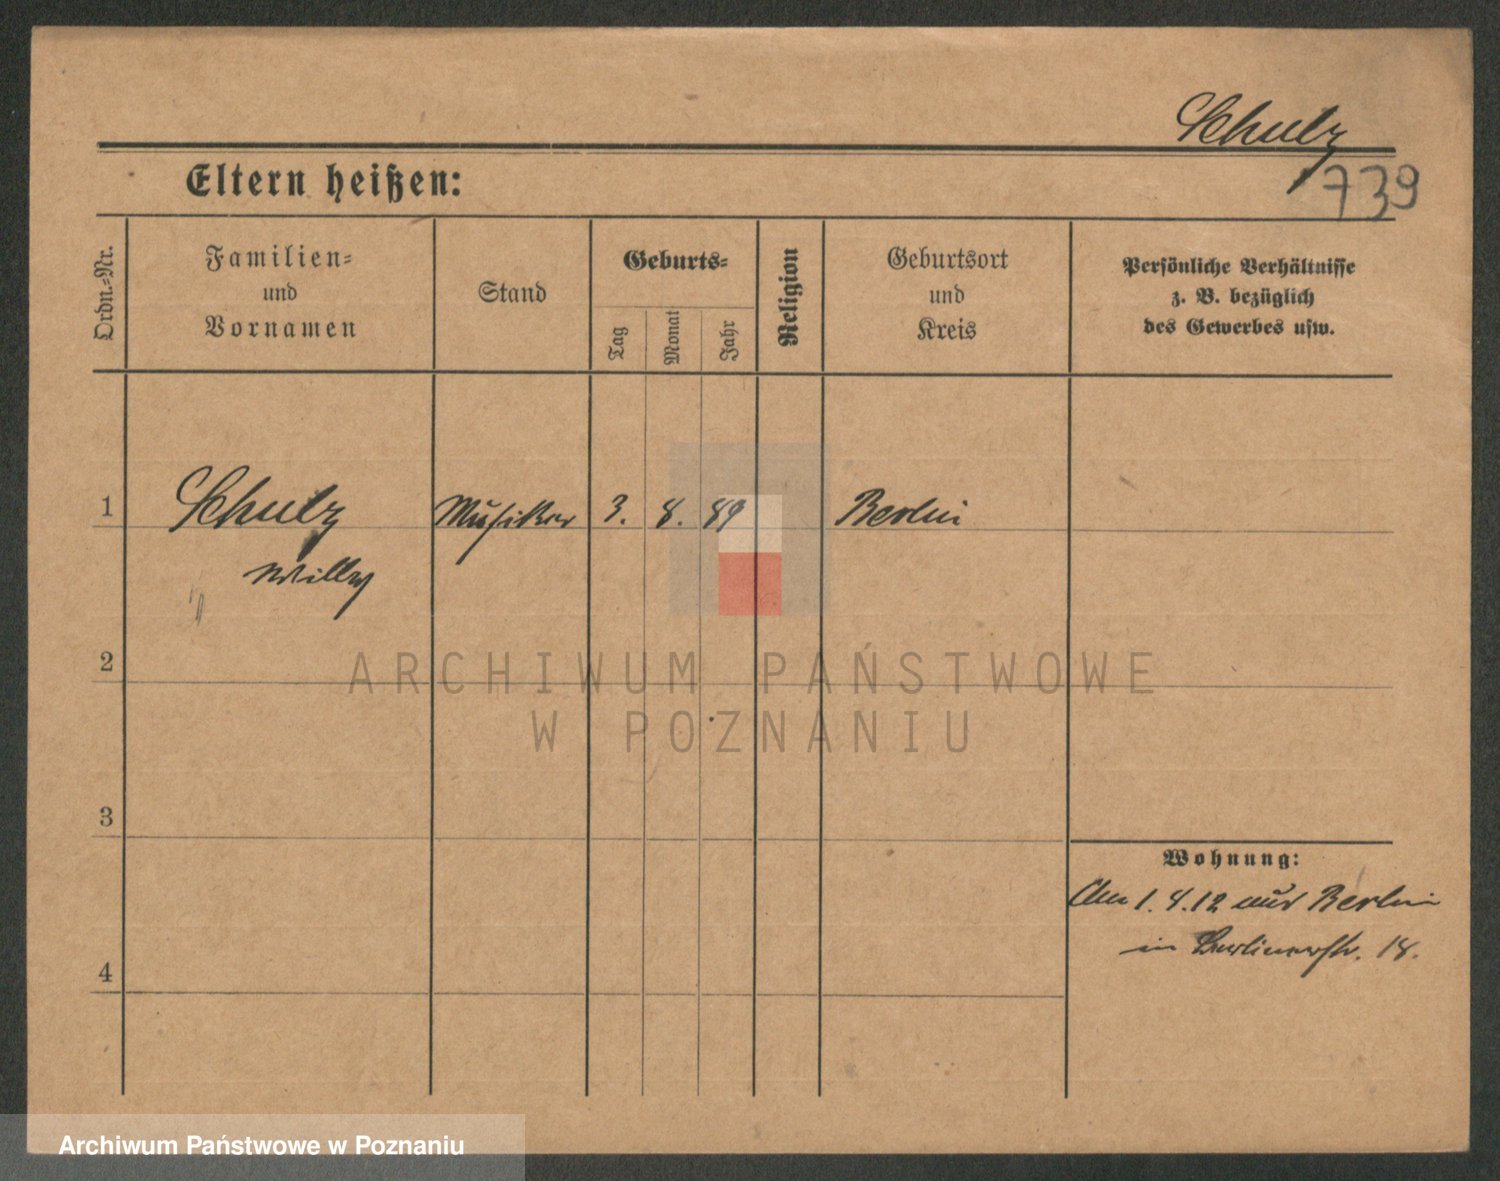 Schulz
739
Eltern heißen:
Ordn.-Nr.
Familien-
und
Vornamen
Stand
Geburts-
Tag
Monat
Jahr
Religion
Geburtsort
und
Kreis
Persönliche Verhältnisse
z. B. bezüglich
des Gewerbes usw.
1
Schulz
Willy
Musiker
3.
8.
89
Berlin
2
ARCHIWUM PAŃSTWOWE
W POZNANIU
3
Wohnung:
Am 1.4.12 aus Berlin
in Berlinerstr. 18.
4
Archiwum Państwowe w Poznaniu